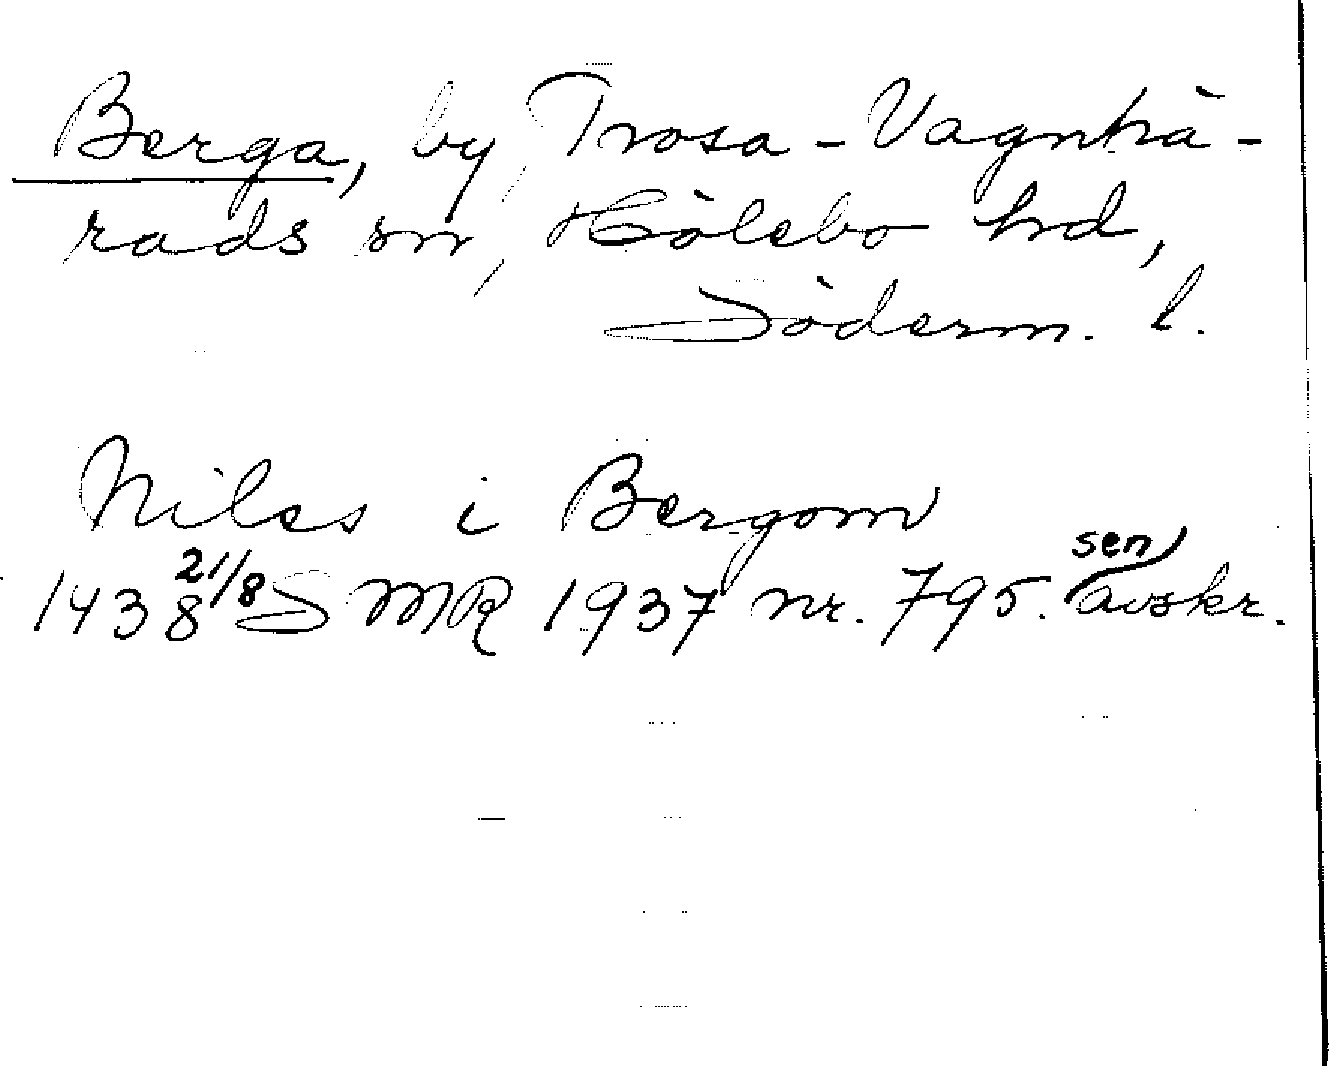 Berga, by, Trosa-Vagnhä-
rads sn, Hölebo hd,
Söderm. l.
Niles i Bergom
1438 21/8 SMR 1937 nr. 795. sen avskr.